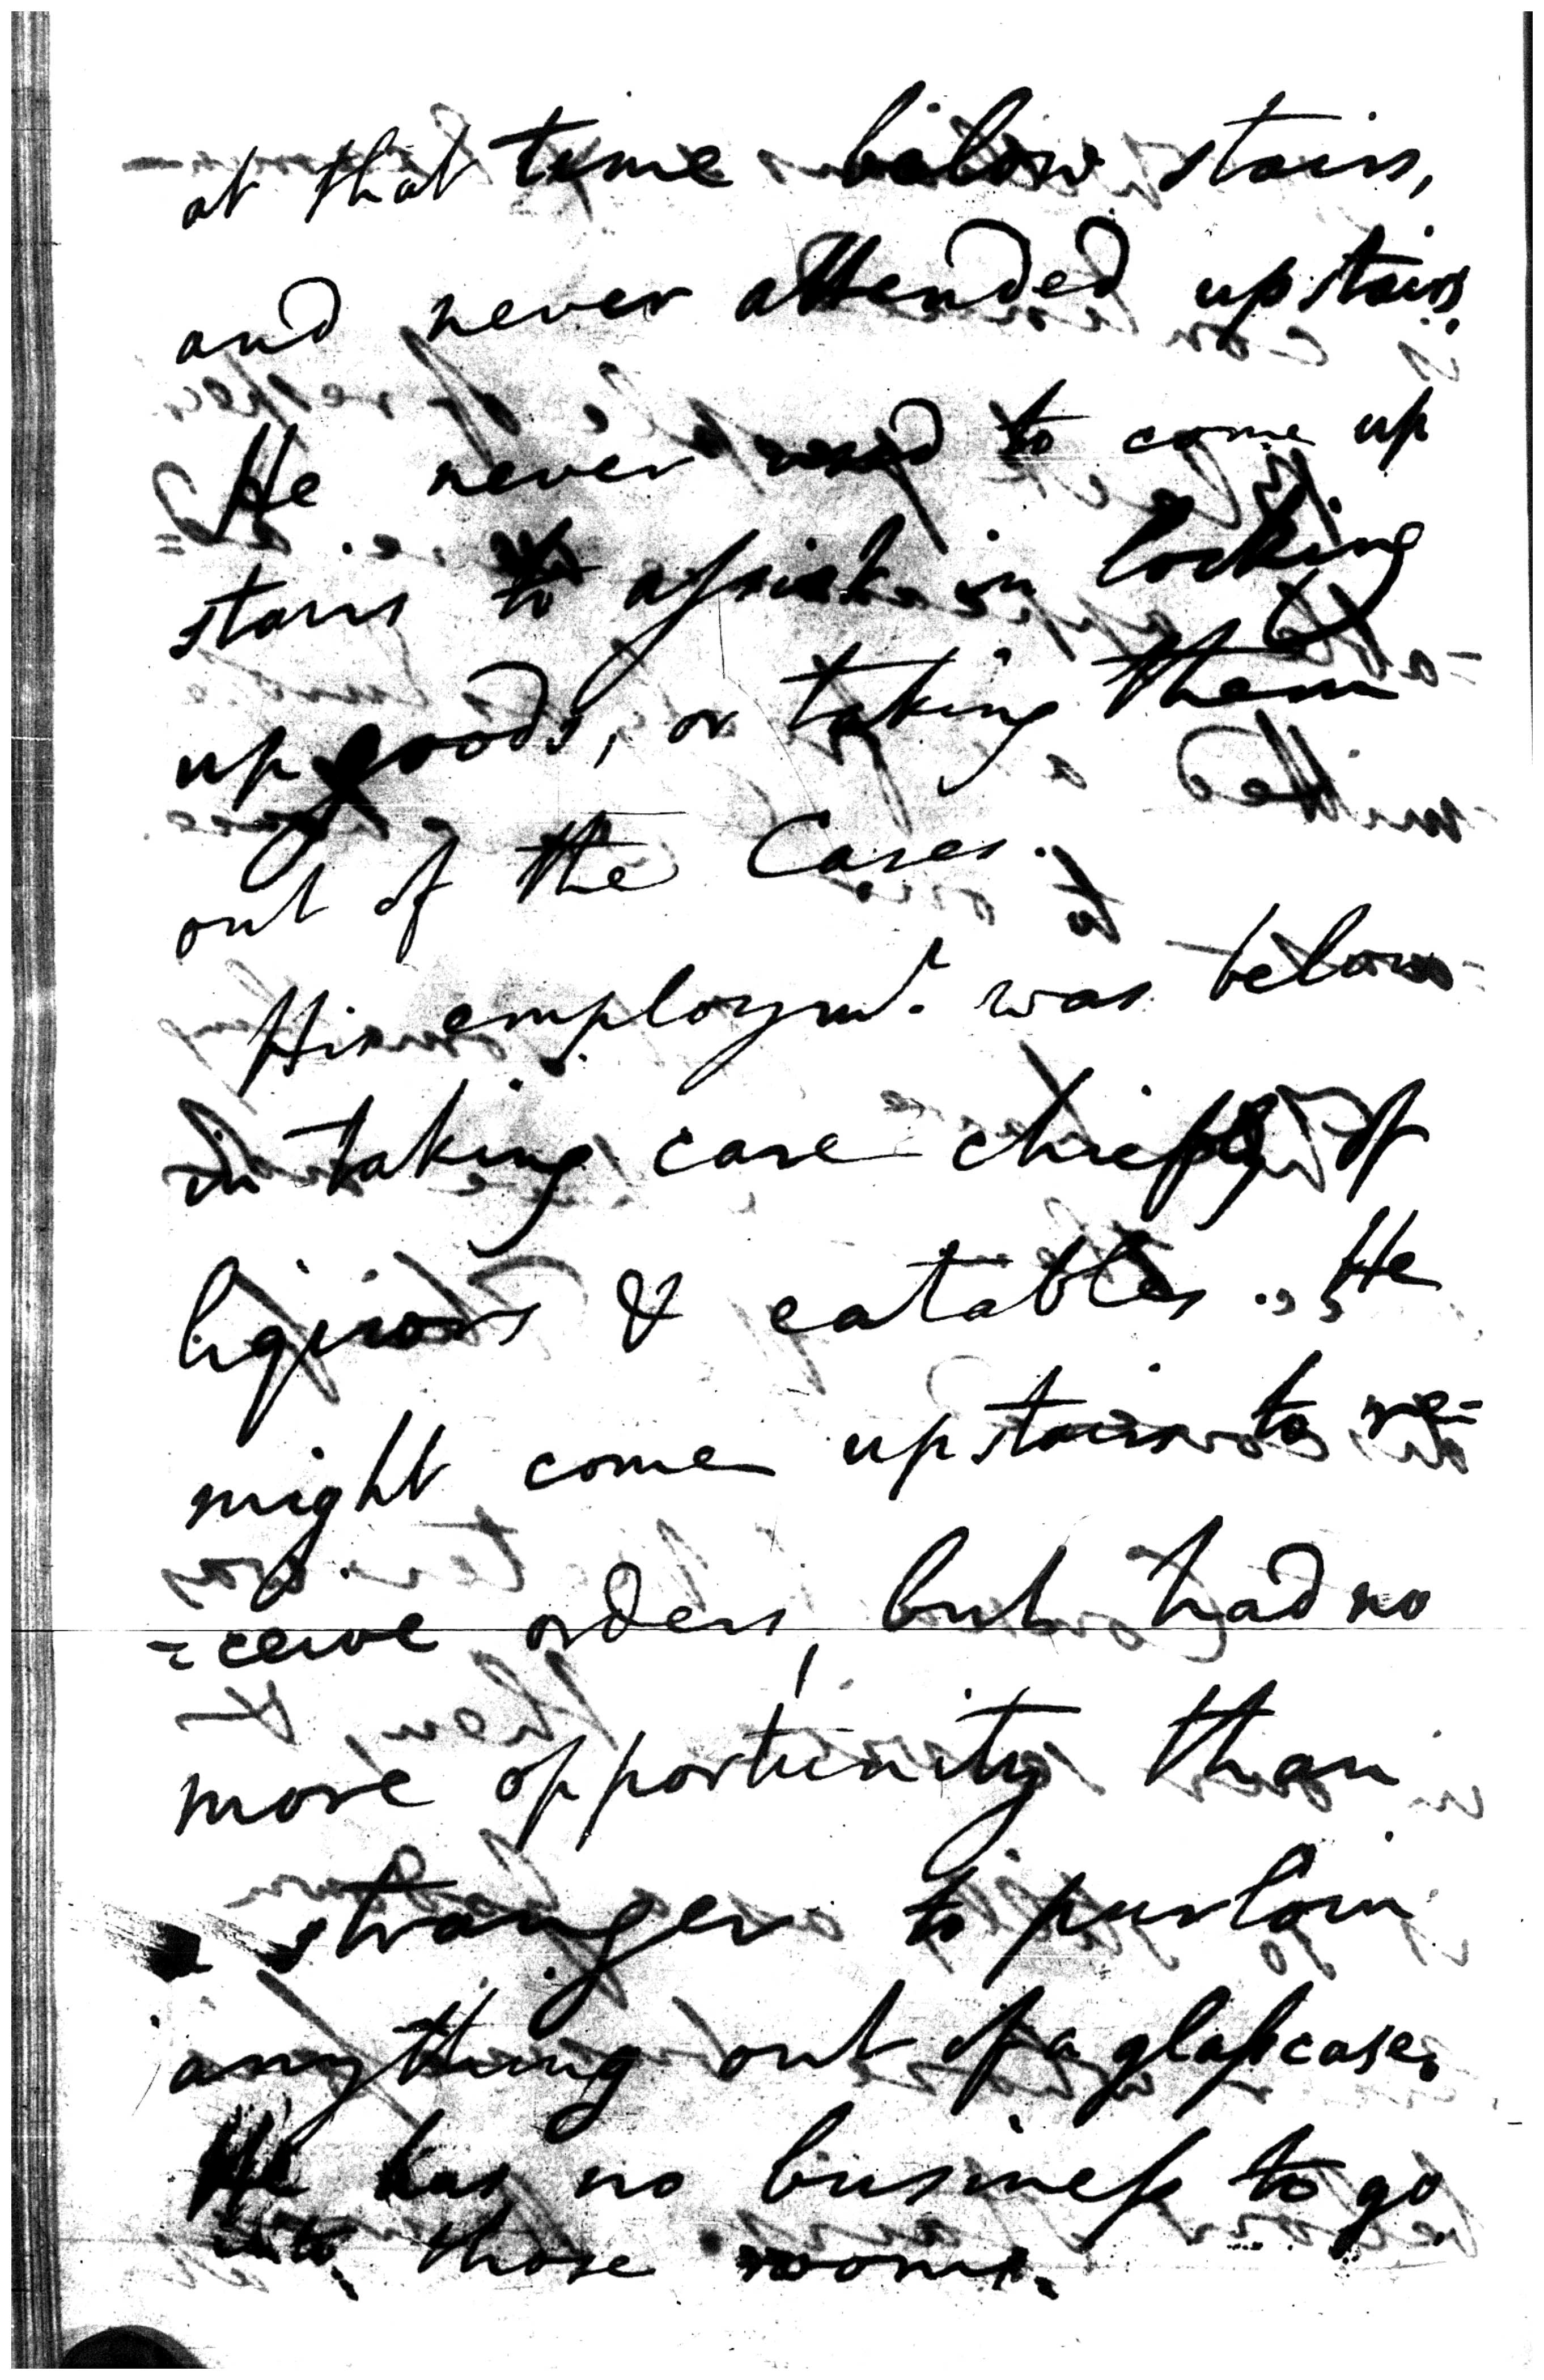 at that time below stairs,
and never attended upstairs.
He never used to come up
stairs to assist in locking
up goods, or taking them
out of the Cases.
His employmt. was below
in taking care chiefly of
liquors & eatables. He
might come upstairs to re=
=ceive orders, but had no
more opportunity than
a stranger to purloin
anything out of a glass case.
He has no business to go
into those rooms.